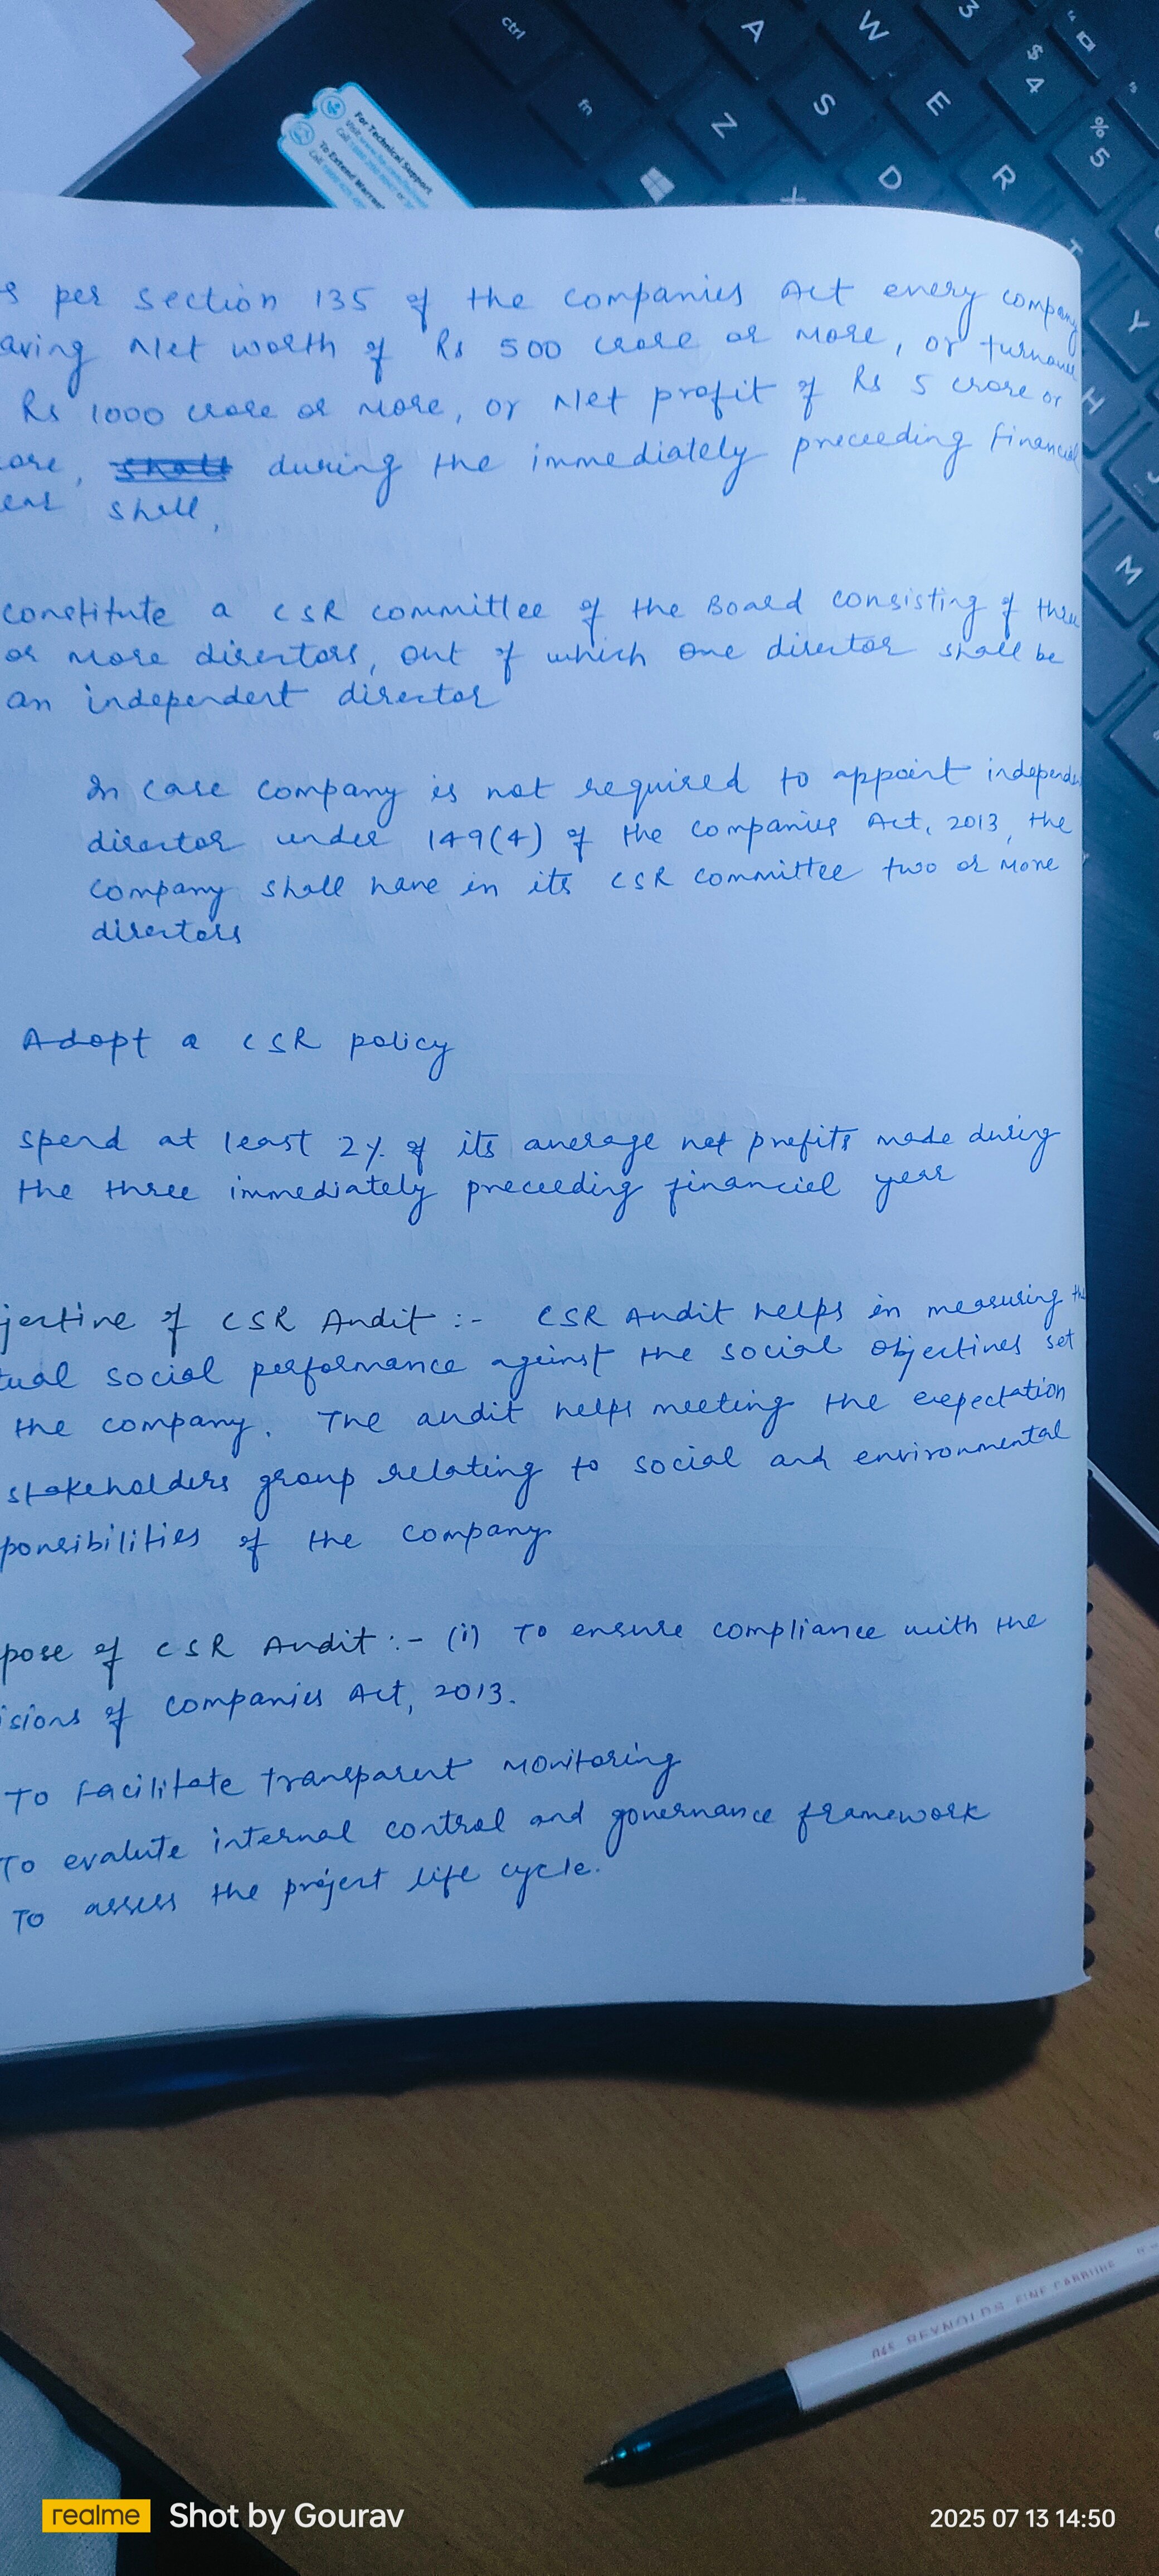 ctrl
A
W
3
$
4
%
5
fn
Z
S
E
X
D
R
T
Y
H
J
M
For Technical Support
To Extend Warran
s per section 135 of the Companies Act every company
aving Net worth of Rs 500 crore or more, or turnover
Rs 1000 crore or more, or Net profit of Rs 5 crore or
ore, during the immediately preceeding financial
ear shall,
constitute a CSR committee of the Board consisting of three
or more directors, out of which one director shall be
an independent director
In case company is not required to appoint independe
director under 149(4) of the Companies Act, 2013, the
company shall have in its CSR committee two or more
directors
Adopt a CSR policy
spend at least 2% of its average net profits made during
the three immediately preceeding financial year
jective of CSR Audit :- CSR Audit helps in measuring the
tual social performance against the social objectives set
the company. The audit helps meeting the expectation
stakeholders group relating to social and environmental
ponsibilities of the company.
pose of CSR Audit :- (i) To ensure compliance with the
isions of Companies Act, 2013.
To facilitate transparent monitoring
To evalute internal control and governance framework
To assess the project life cycle.
045 REYNOLDS FINE CARBURE
realme Shot by Gourav
2025 07 13 14:50